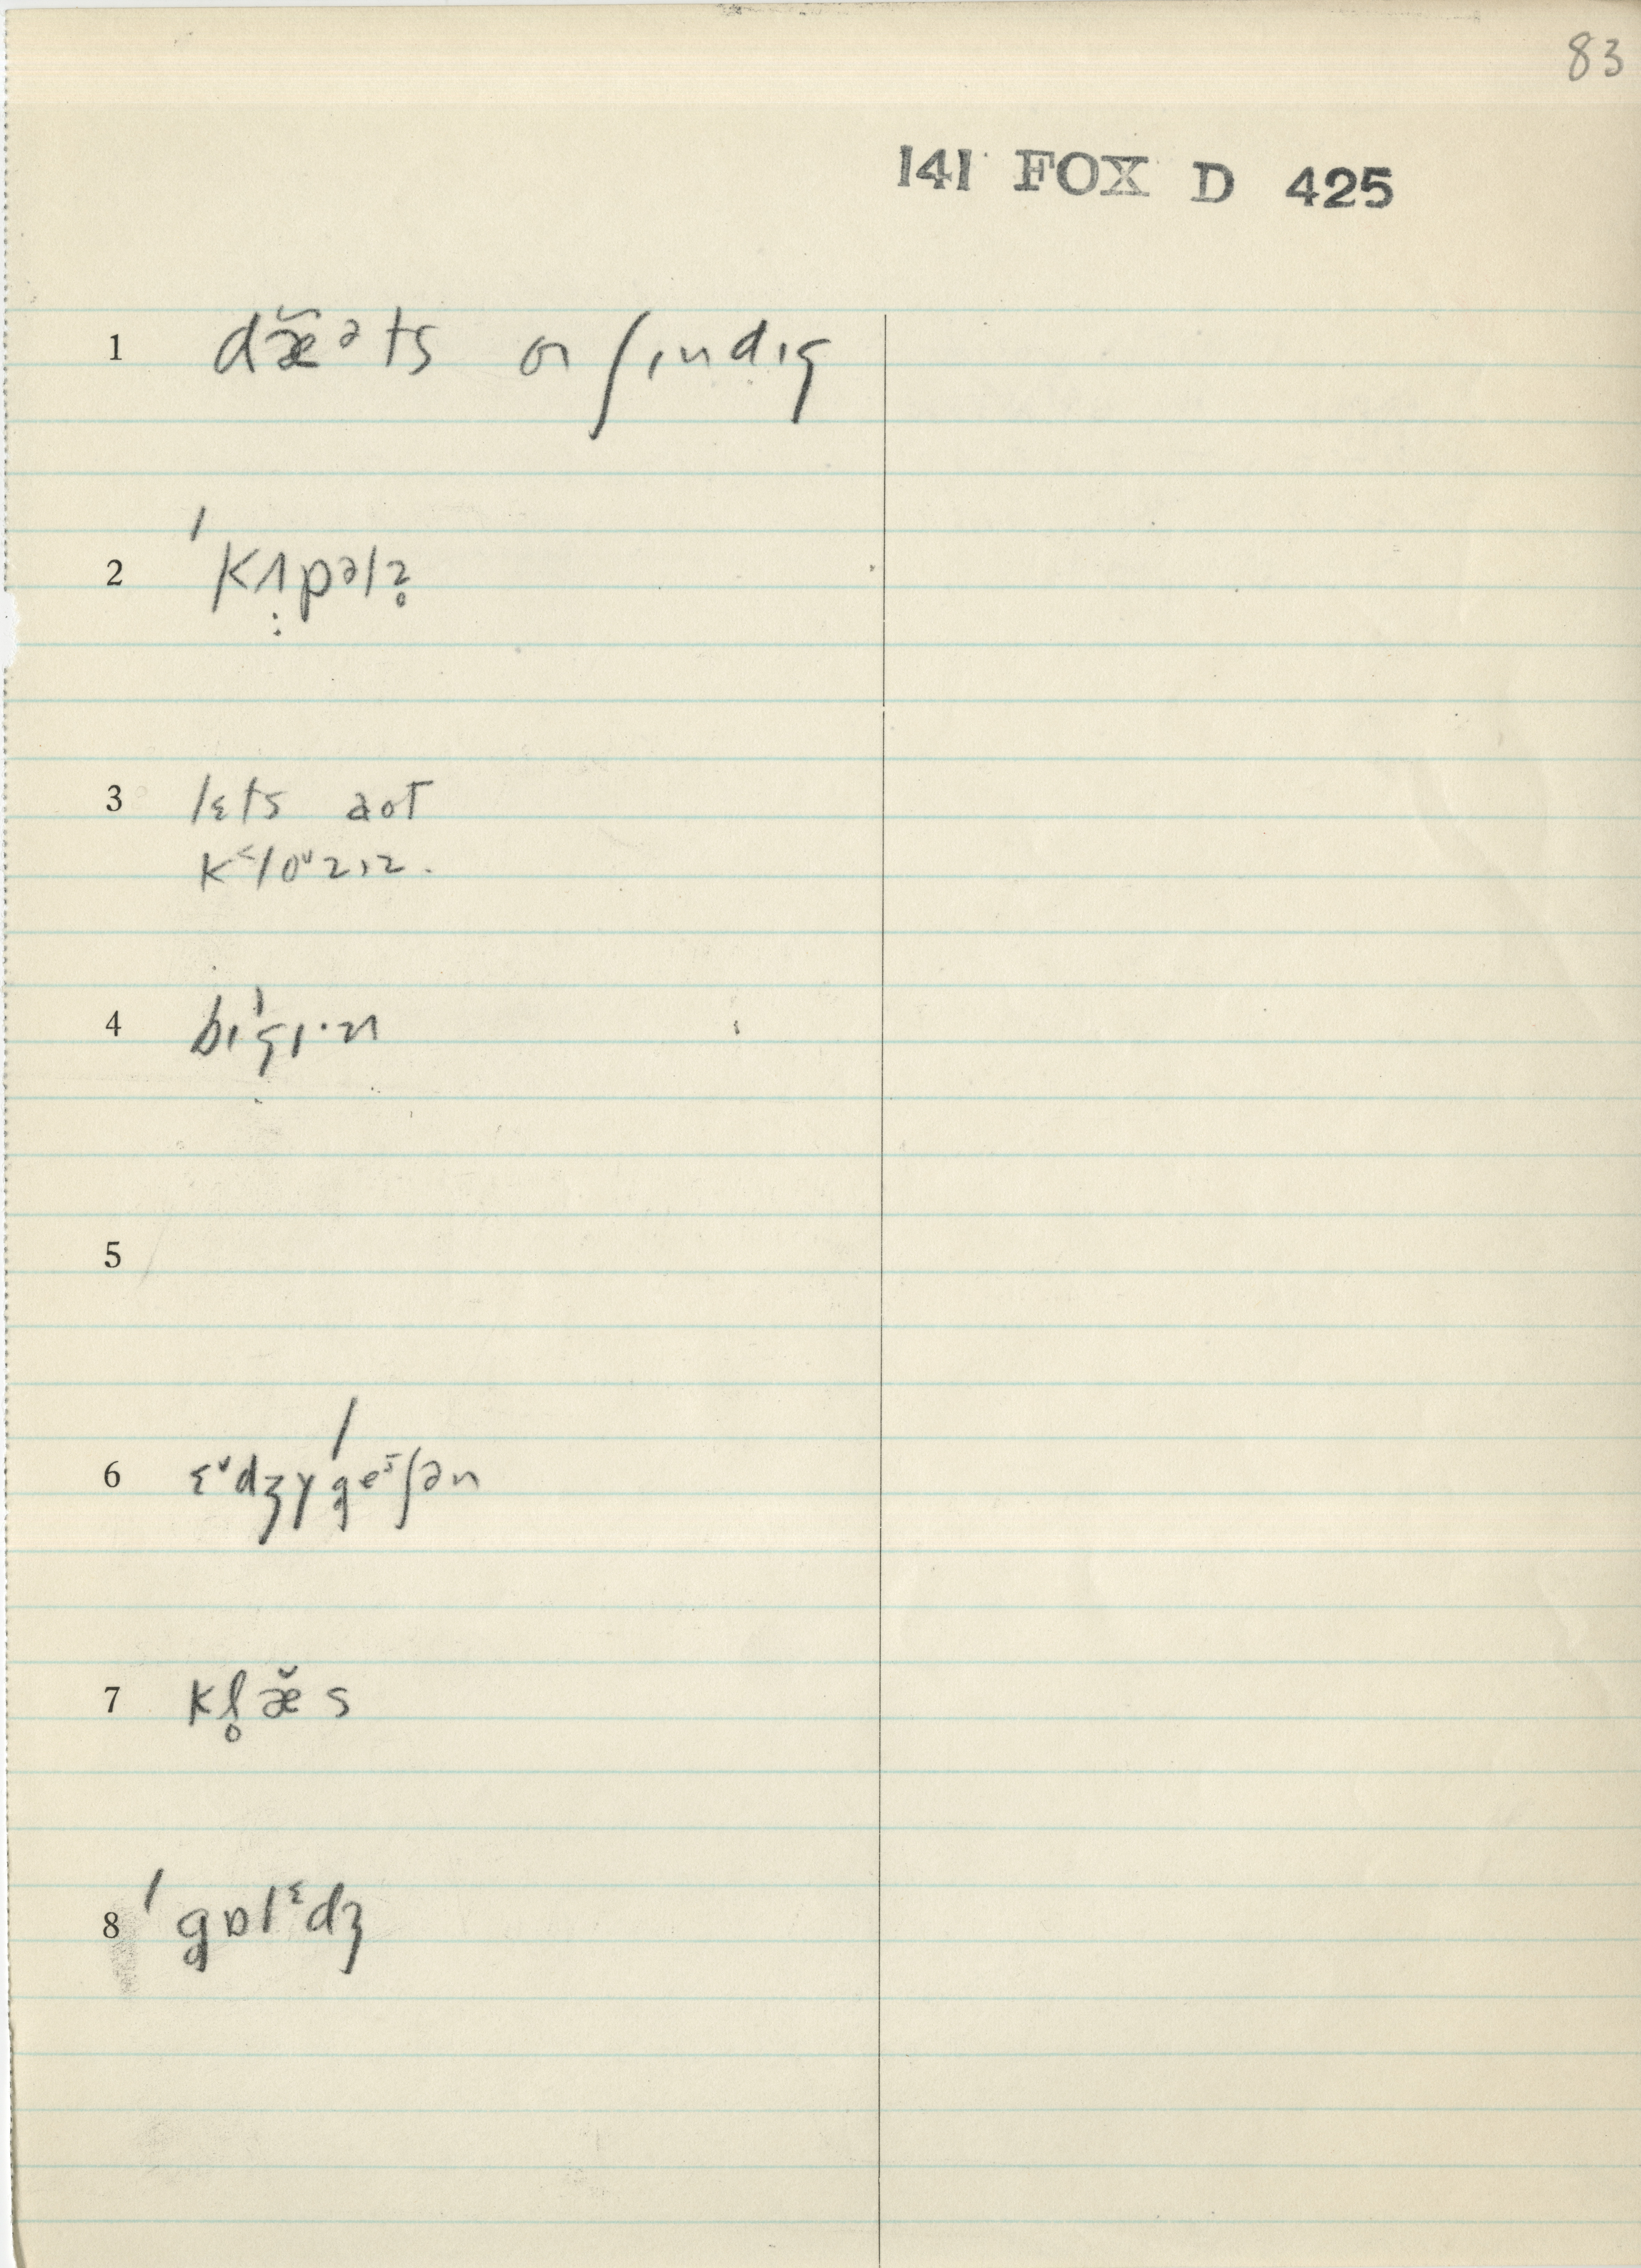 83
141 FOX D 425
1 dæ̆ᵊts ɑ ʃɪndɪg
2 ˈkɪpəlz̥
3 lɛts aot
k˂loᶷzɪz.
4 bɪˈgɪ·n
5
6 ɛᵛdʒɣˈgeᶦʃən
7 kl̥æ̆s
8 ˈgɒlᵋdʒ